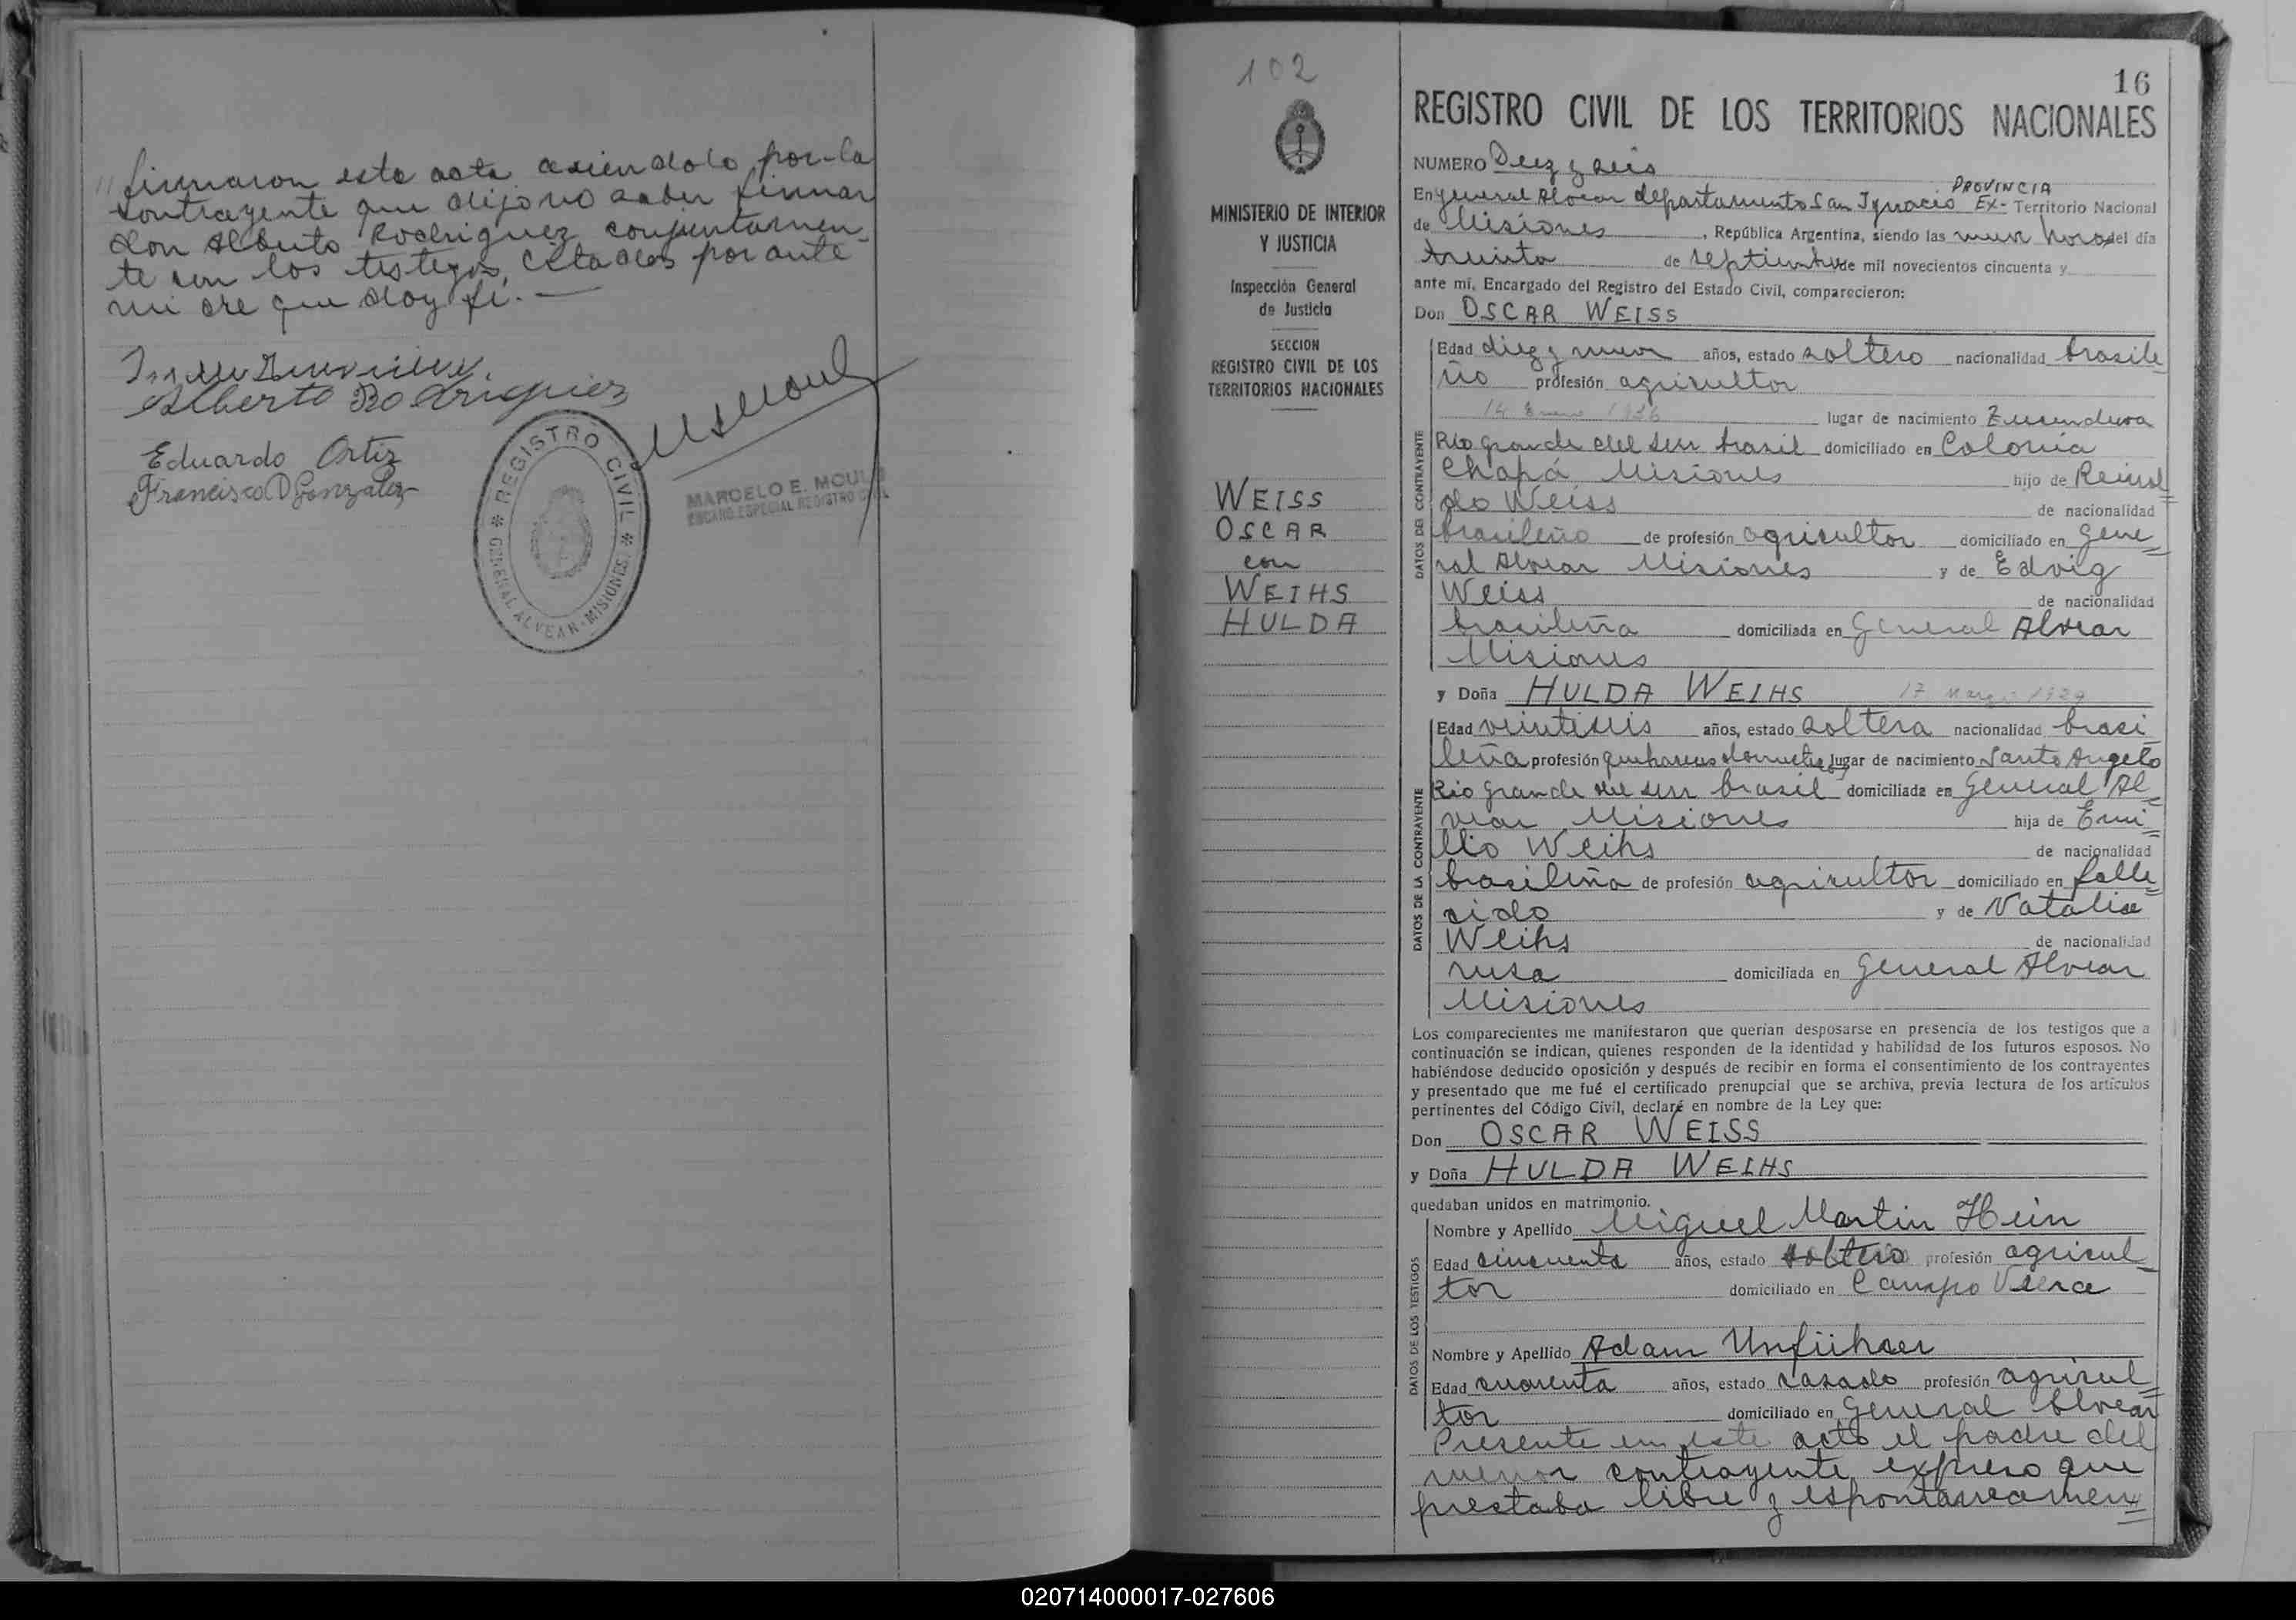 // firmaron esta acta asiendolo por la
contrayente que dijo no saber firmar
don Alberto Rodriguez conjuntamen-
te con los testigos citados por ante
mi de que doy fé.-
Alberto Rodriguez
Eduardo Ortiz
Francisco D Gonzalez
REGISTRO CIVIL
GENERAL ALVEAR - MISIONES
MARCELO E. MOUL
ENCARG. ESPECIAL REGISTRO CIVIL
102
MINISTERIO DE INTERIOR
Y JUSTICIA
Inspección General
de Justicia
SECCION
REGISTRO CIVIL DE LOS
TERRITORIOS NACIONALES
WEISS
OSCAR
con
WEIHS
HULDA
16
REGISTRO CIVIL DE LOS TERRITORIOS NACIONALES
NUMERO Diez y seis
PROVINCIA
En General Alvear departamento San Ignacio EX- Territorio Nacional
de Misiones, República Argentina, siendo las nueve horas del día
treinta de septiembre de mil novecientos cincuenta y
ante mí, Encargado del Registro del Estado Civil, comparecieron:
Don OSCAR WEISS
DATOS DEL CONTRAYENTE
Edad diez y nueve años, estado soltero nacionalidad brasile
ño profesión agricultor
14 Enero 1936 lugar de nacimiento
Rio grande del sur brasil domiciliado en Colonia
Chapá Misiones hijo de Reinal
do Weiss de nacionalidad
brasileño de profesión agricultor domiciliado en Gene
ral Alvear Misiones y de Edvig
Weiss de nacionalidad
brasileña domiciliada en General Alvear
Misiones
y Doña HULDA WEIHS 17 Marzo 1929
DATOS DE LA CONTRAYENTE
Edad veintiseis años, estado soltera nacionalidad brasi
leña profesión quehaceres domesticos lugar de nacimiento Santo Angelo
Rio grande del sur brasil domiciliada en General Al
vear Misiones hija de Emi
lio Weihs de nacionalidad
brasileña de profesión agricultor domiciliado en falle
cido y de Natalia
Weihs de nacionalidad
rusa domiciliada en General Alvear
Misiones
Los comparecientes me manifestaron que querían desposarse en presencia de los testigos que a
continuación se indican, quienes responden de la identidad y habilidad de los futuros esposos. No
habiéndose deducido oposición y después de recibir en forma el consentimiento de los contrayentes
y presentado que me fué el certificado prenupcial que se archiva, previa lectura de los artículos
pertinentes del Código Civil, declaré en nombre de la Ley que:
Don OSCAR WEISS
y Doña HULDA WEIHS
quedaban unidos en matrimonio.
DATOS DE LOS TESTIGOS
Nombre y Apellido Miguel Martin Hein
Edad cincuenta años, estado soltero profesión agricul
tor domiciliado en Campo Viera
Nombre y Apellido Adam Unführer
Edad cuarenta años, estado casado profesión agricul
tor domiciliado en General Alvear
Presente en este acto el padre del
menor contrayente expreso que
prestaba libre y espontaneamen
020714000017-027606